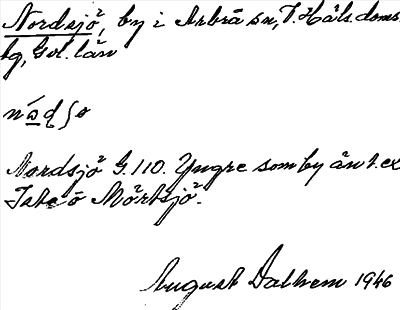 Nordsjö, by i Arbrå sn, V. Häls. doms.
bg, Gvl. län
Nordsjö G. 110. Yngre som by än t. ex
Iste o Mörtsjö.
August Dalhem 1946